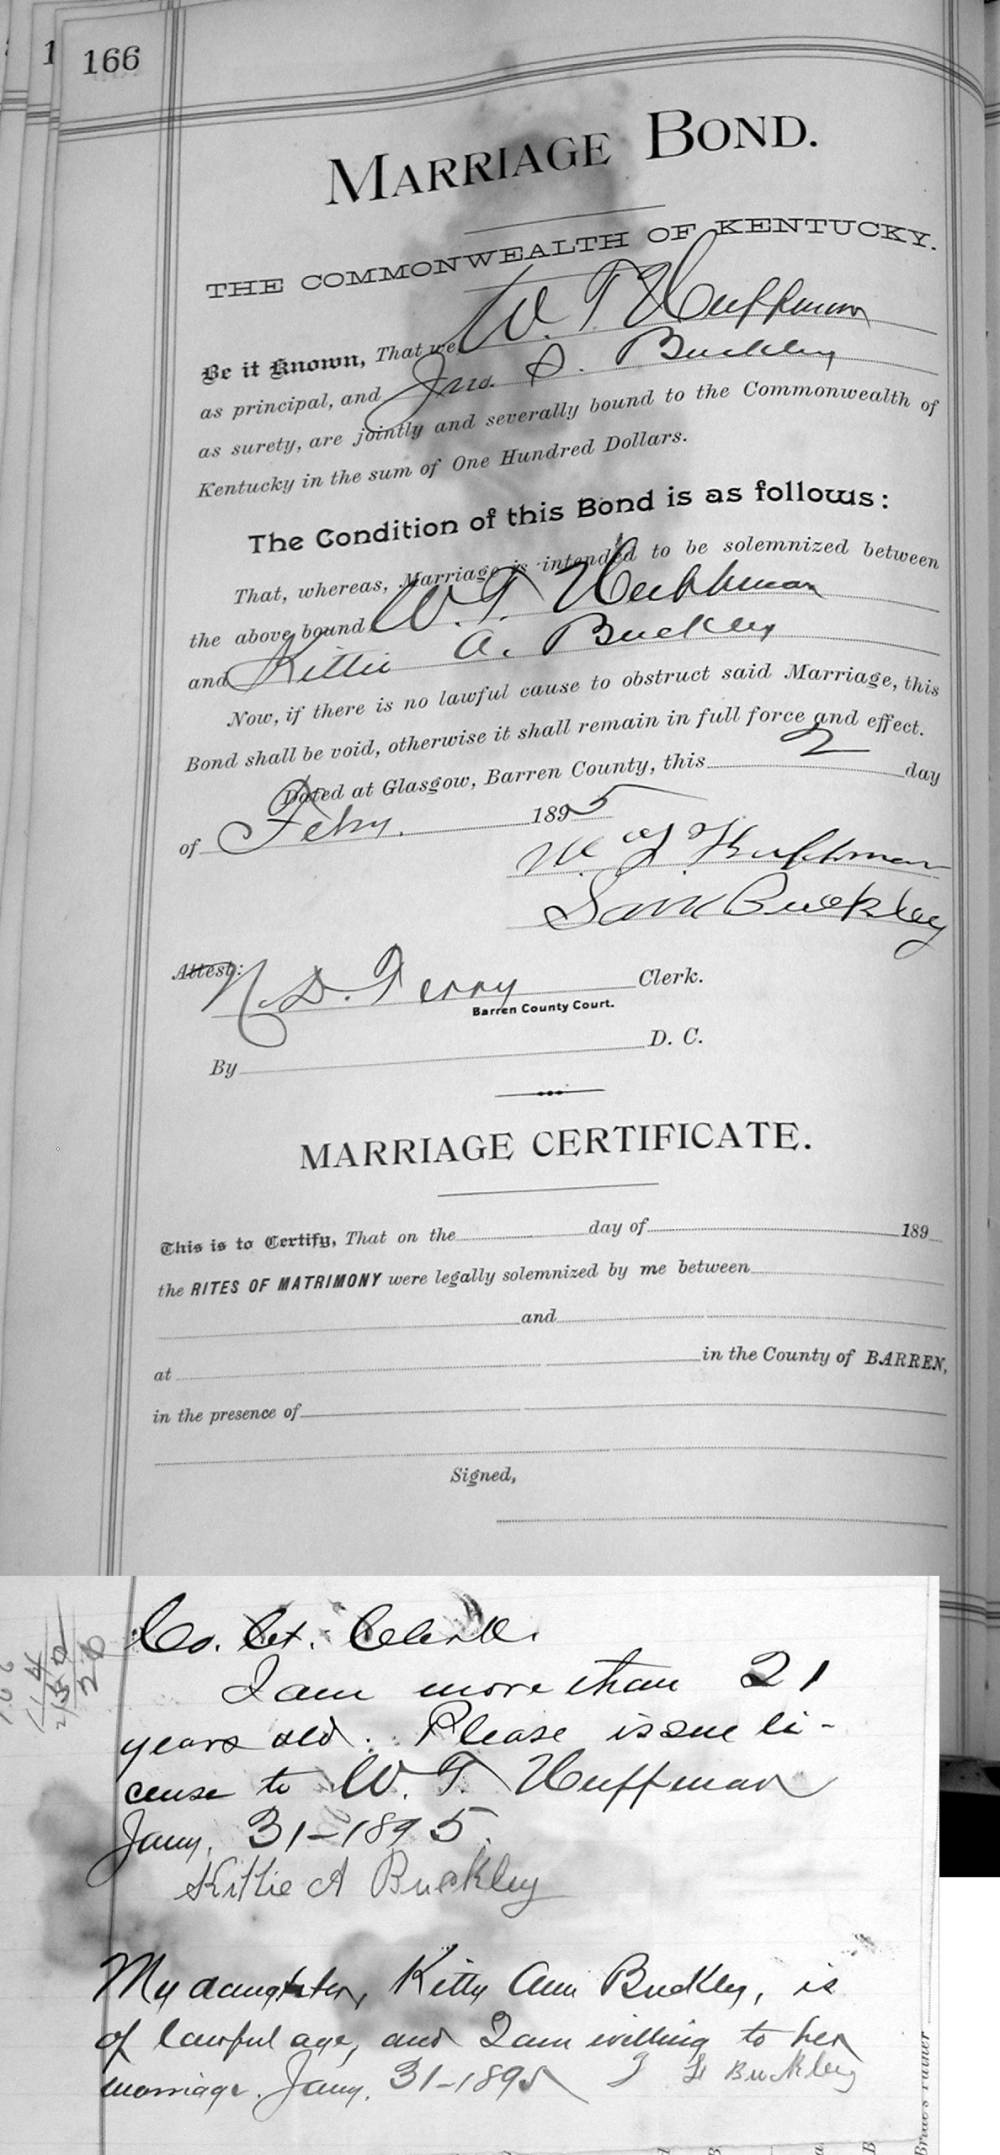 166
MARRIAGE BOND.
THE COMMONWEALTH OF KENTUCKY.
Be it Known, That we W. T. Huffman
as principal, and Jno. S. Buckley
as surety, are jointly and severally bound to the Commonwealth of
Kentucky in the sum of One Hundred Dollars.
The Condition of this Bond is as follows:
That, whereas, Marriage is intended to be solemnized between
the above bound W. T. Huffman
and Kittie A. Buckley
Now, if there is no lawful cause to obstruct said Marriage, this
Bond shall be void, otherwise it shall remain in full force and effect.
Dated at Glasgow, Barren County, this 2 day
of Feby. 1895
W T Huffman
Sam Buckley
Attest: N. D. Terry Clerk.
Barren County Court.
By D. C.
MARRIAGE CERTIFICATE.
This is to Certify, That on the day of 189
the RITES OF MATRIMONY were legally solemnized by me between
and
at in the County of BARREN,
in the presence of
Signed,
Co. Ct. Clerk.
I am more than 21
years old. Please issue li-
cense to W. T. Huffman
Jany. 31-1895.
Kittie A Buckley
My daughter, Kitty Ann Buckley, is
of lawful age, and I am willing to her
marriage. Jany. 31-1895 Buckley